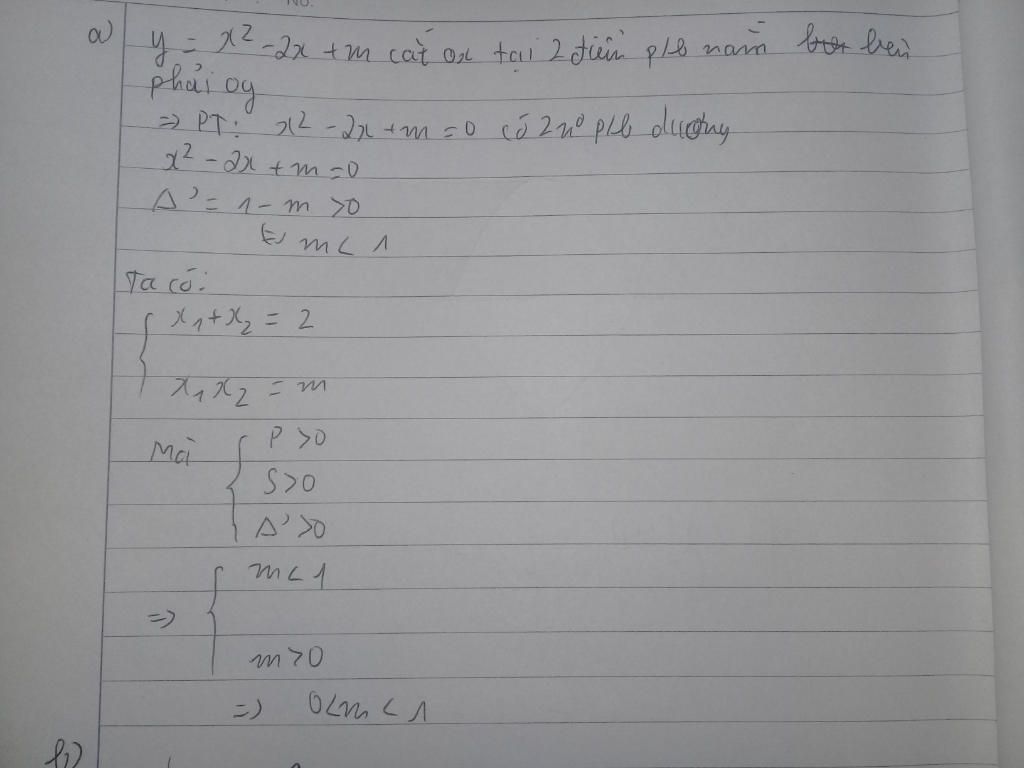 No.
a) y = x² - 2x + m cắt ox tại 2 điểm p/b nằm bên
phải oy
=> PT: x² - 2x + m = 0 có 2 n⁰ p/b dương
x² - 2x + m = 0
Δ' = 1 - m > 0
m < 1
Ta có:
x₁ + x₂ = 2
x₁x₂ = m
Mà { P > 0
S > 0
Δ' > 0
=> { m < 1
m > 0
=> 0 < m < 1
b)